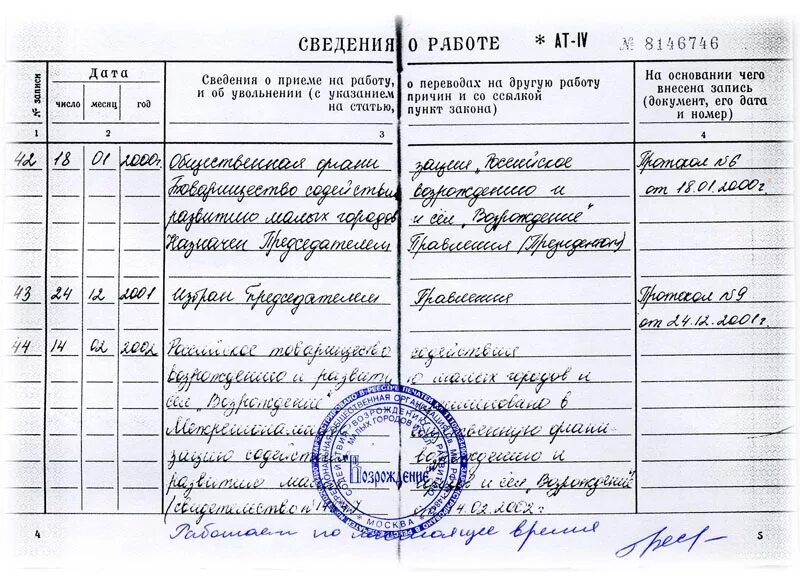 СВЕДЕНИЯ О РАБОТЕ * АТ-IV № 8146746
№ записи
Дата
число месяц год
Сведения о приеме на работу, о переводах на другую работу
и об увольнении (с указанием причин и со ссылкой
на статью, пункт закона)
На основании чего
внесена запись
(документ, его дата
и номер)
1 2 3 4
42 18 01 2000г. Общественная органи зация „Российское Протокол №6
Товарищество содействия возрождению и от 18.01.2000г.
развитию малых городов и сёл „Возрождение"
Назначен Председателем Правления (Президентом)
43 24 12 2001 Избран Председателем Правления Протокол №9
от 24.12.2001г.
44 14 02 2002 Российское товарищество содействия
возрождению и развитию малых городов и
сёл „Возрождение"
Межрегиона в
зацию содейст органи-
развитию ма возрождению и
и сёл „Возрождение"
(свидетельство от 14.02.2002
Возрождение
МОСКВА
Работает по настоящее время
4 5